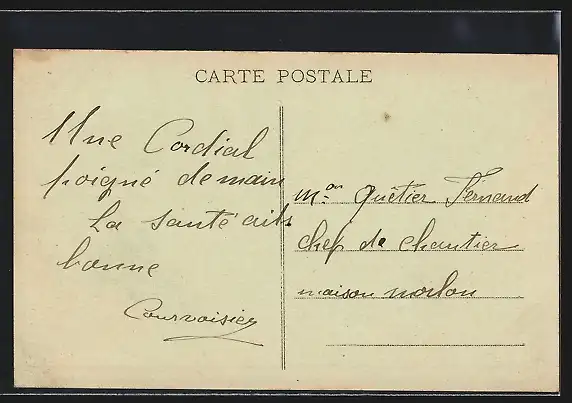 CARTE POSTALE
Une Cordial
poigné de main
La santé
bonne
Courvoisier
Mon Quétier Fernand
chef de chantier
maison